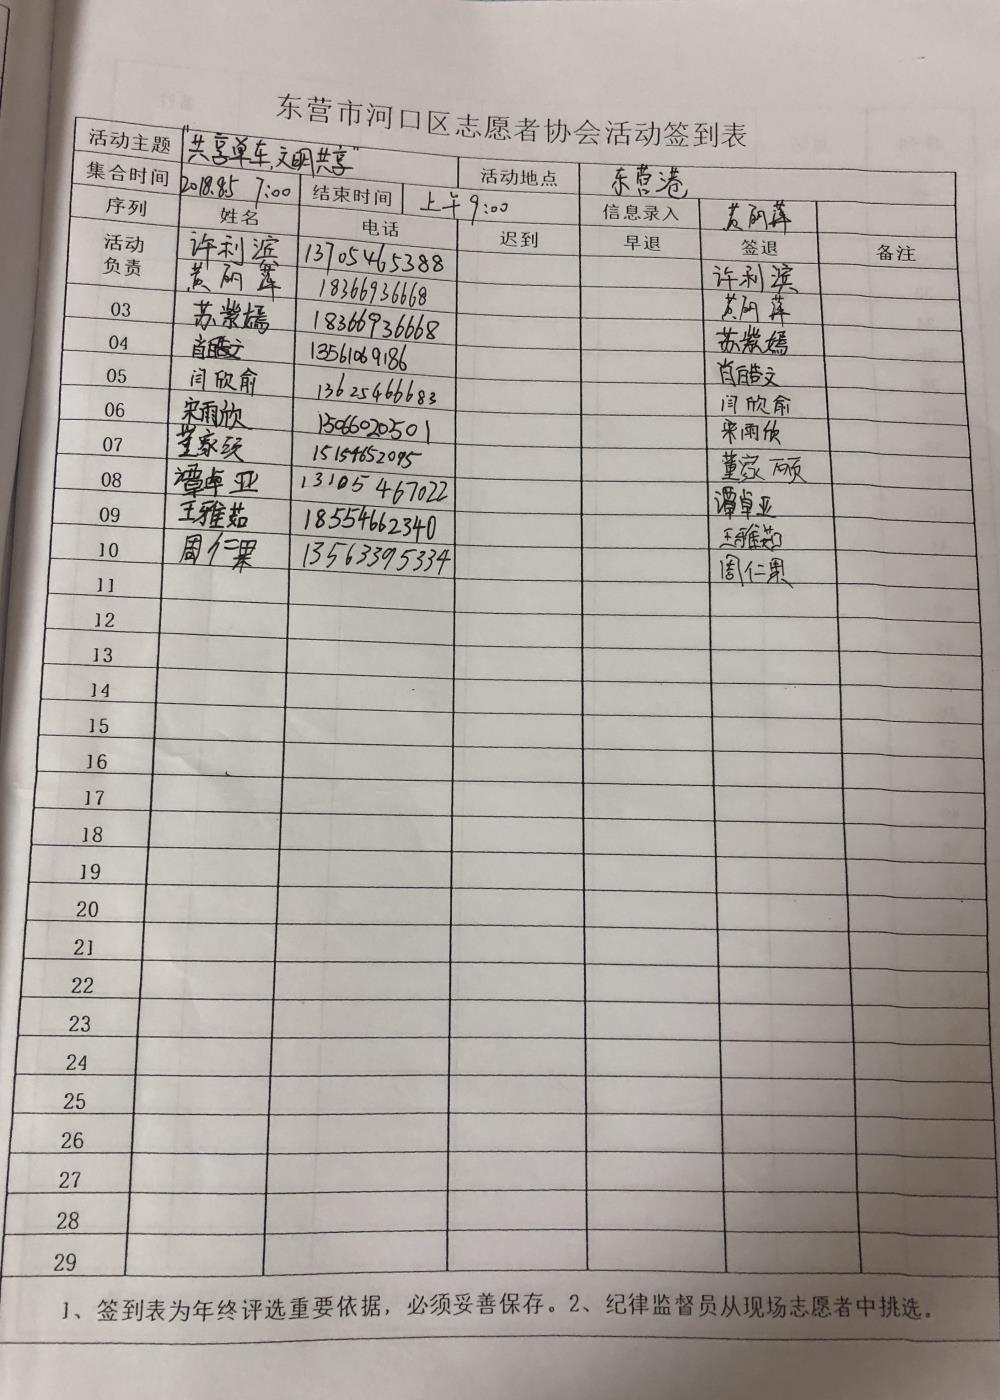 东营市河口区志愿者协会活动签到表
活动主题 "共享单车,文明共享"
集合时间 2018.8.5 7:00 结束时间 上午9:00 活动地点 东营港
序列 姓名 电话 迟到 信息录入 黄丽萍
早退 签退 备注
活动负责 许利滨 13705465388 许利滨
黄丽萍 18366936668 黄丽萍
03 苏紫嫣 18366936668 苏紫嫣
04 肖皓文 13561069186 肖皓文
05 闫欣俞 13625466683 闫欣俞
06 宋雨欣 15066020501 宋雨欣
07 董家硕 15154652095 董家硕
08 谭卓亚 13105467022 谭卓亚
09 王雅茹 18554662340 王雅茹
10 周仁果 13563395334 周仁果
11
12
13
14
15
16
17
18
19
20
21
22
23
24
25
26
27
28
29
1、签到表为年终评选重要依据，必须妥善保存。2、纪律监督员从现场志愿者中挑选。